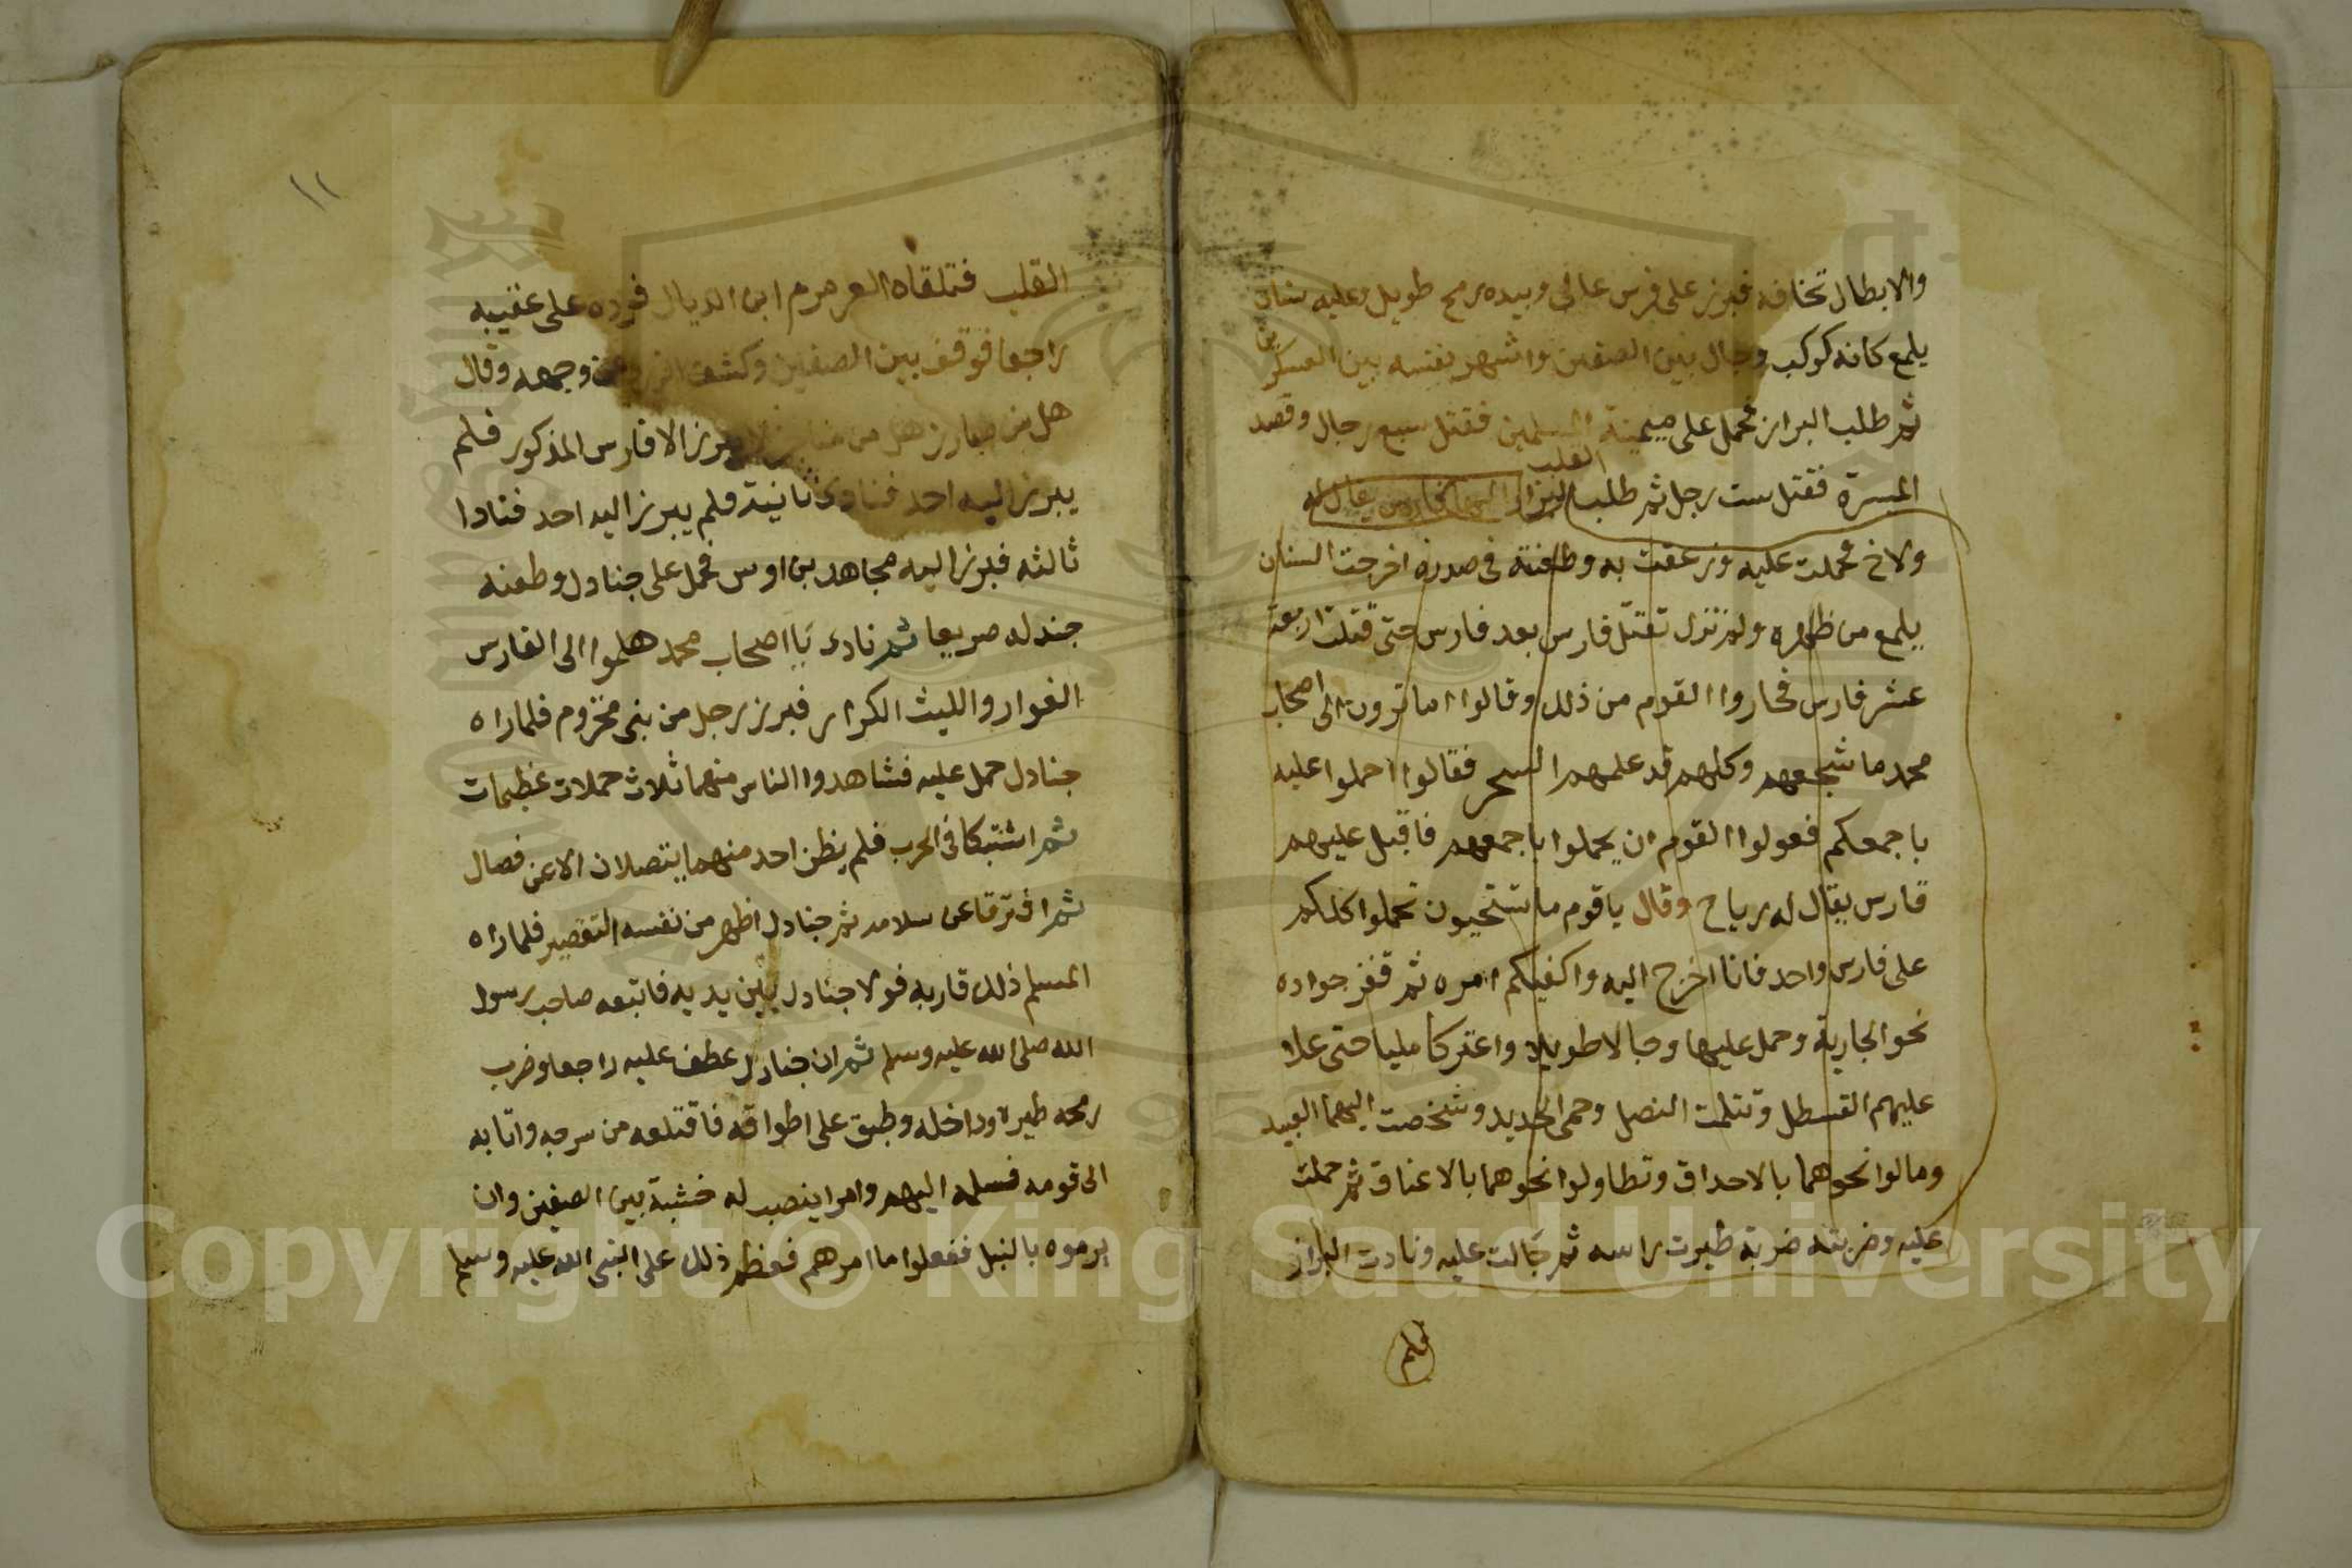 والابطال تخافه فبرز على فرس عالى وبيده رمح طويل وعليه سنان
يلمع كانه كوكب وجال بين الصفين واشهر نفسه بين العسكرين
ثم طلب البراز فحمل على ميمنة المسلمين فقتل سبع رجال وقصد
القلب
الميسرة فقتل ست رجل ثم طلب اليهما فارس يقال له
ولاخ فحملت عليه وزعقت به وطعنته فى صدره اخرجت السنان
يلمع من ظهره ولم تزل تقتل فارس بعد فارس حتى قتلت اربعة
عشر فارس فحاروا القوم من ذلك وقالوا اما ترون الى اصحاب
محمد ما شجعهم وكلهم قد علمهم السحر فقالوا احملوا عليه
باجمعكم فعولوا القوم ان يحملوا باجمعهم فاقبل عليهم
فارس يقال له رياح وقال ياقوم ما تستحيون تحملوا كلكم
على فارس واحد فانا اخرج اليه واكفيكم امره ثم قفز جواده
نحو الجارية وحمل عليها وجالا طويلا واعتركا مليا حتى علا
عليهم القسطل وتثلمت النصل وحمى الحديد وشخصت اليهما العبيد
ومالوا نحوهما بالاحداق وتطاولوا نحوهما بالاعناق ثم حملت
عليه وضربته ضربة طيرت راسه ثم جالت عليه ونادت البراز
فلم
١١
القلب فتلقاه العرمرم ابن الديال فرده على عقبيه
راجعا فوقف بين الصفين وكشف عن وجهه وقال
هل من مبارز هل من مناجز لا يبرز الا فارس المذكور فلم
يبرز اليه احد فنادى ثانية فلم يبرز اليه احد فنادا
ثالثه فبرز اليه مجاهد بن اوس فحمل على جنادل وطعنه
جندله صريعا ثم نادى يا اصحاب محمد هلموا الى الفارس
الغوار والليث الكرار فبرز رجل من بنى مخزوم فلما راه
جنادل حمل عليه فشاهدوا الناس منهما ثلاث حملات عظيمات
ثم اشتبكا فى الحرب فلم يظن احد منهما يتصلان الا عن فصال
ثم افترقا عن سلامه ثم جنادل اظهر من نفسه التقصير فلما راه
المسلم ذلك قاربه فولا جنادل بين يديه فاتبعه صاحب رسول
الله صلى الله عليه وسلم ثم ان جنادل عطف عليه راجعا وضرب
رمحه طيره وداخله وطبق على اطواقه فاقتلعه من سرجه واتا به
الى قومه فسلمه اليهم وامر اينصب له خشبة بين الصفين وان
يرموه بالنبل ففعلوا ما امرهم فعظم ذلك على النبى الله عليه وسلم
Copyright © King Saud University